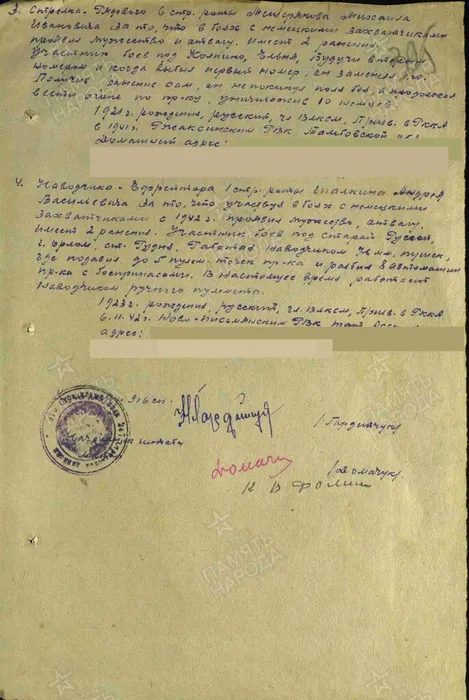 3. Стрелка-Рядового 6 стр. роты Мещерякова Михаила
Ивановича. За то, что в боях с немецкими захватчиками
проявил мужество и отвагу. Имеет 2 ранения.
Участник боев под Колпино, Ельня, Будучи вторым
номером и когда выбыл первый номер, он заменял его.
Получив ранение сам, он не покинул поля боя, а продолжал
вести огонь по пр-ку, уничтожено 10 немцев.
1921 г. рождения, русский, чл. ВЛКСМ, Призв. в РККА
в 1941 г. РВК Тамбовской обл.
Домашний адрес:
4. Наводчика-Ефрейтора 1 стр. роты Андрея
Васильевича. За то, что участвуя в боях с немецкими
захватчиками с 1942 г. проявил мужество, отвагу.
Имеет 2 ранения. Участник боев под Старой Руссой,
г. Орлом, ст. Гудня. Работая наводчиком 45 мм. пушек,
где подавил до 5 пулем. точек пр-ка и разбил 8 автомашин
пр-ка с боеприпасами. В настоящее время, работает
наводчиком ручного пулемета.
1923 г. рождения, русский, чл. ВЛКСМ, Призв. в РККА
6.11.42 г. Ново-Письмянским РВК тат.
адрес:
916 сп.
/Гардиачук/
штаба
Домачук
/Домачук/
К В Фомин
ПАМЯТЬ
НАРОДА